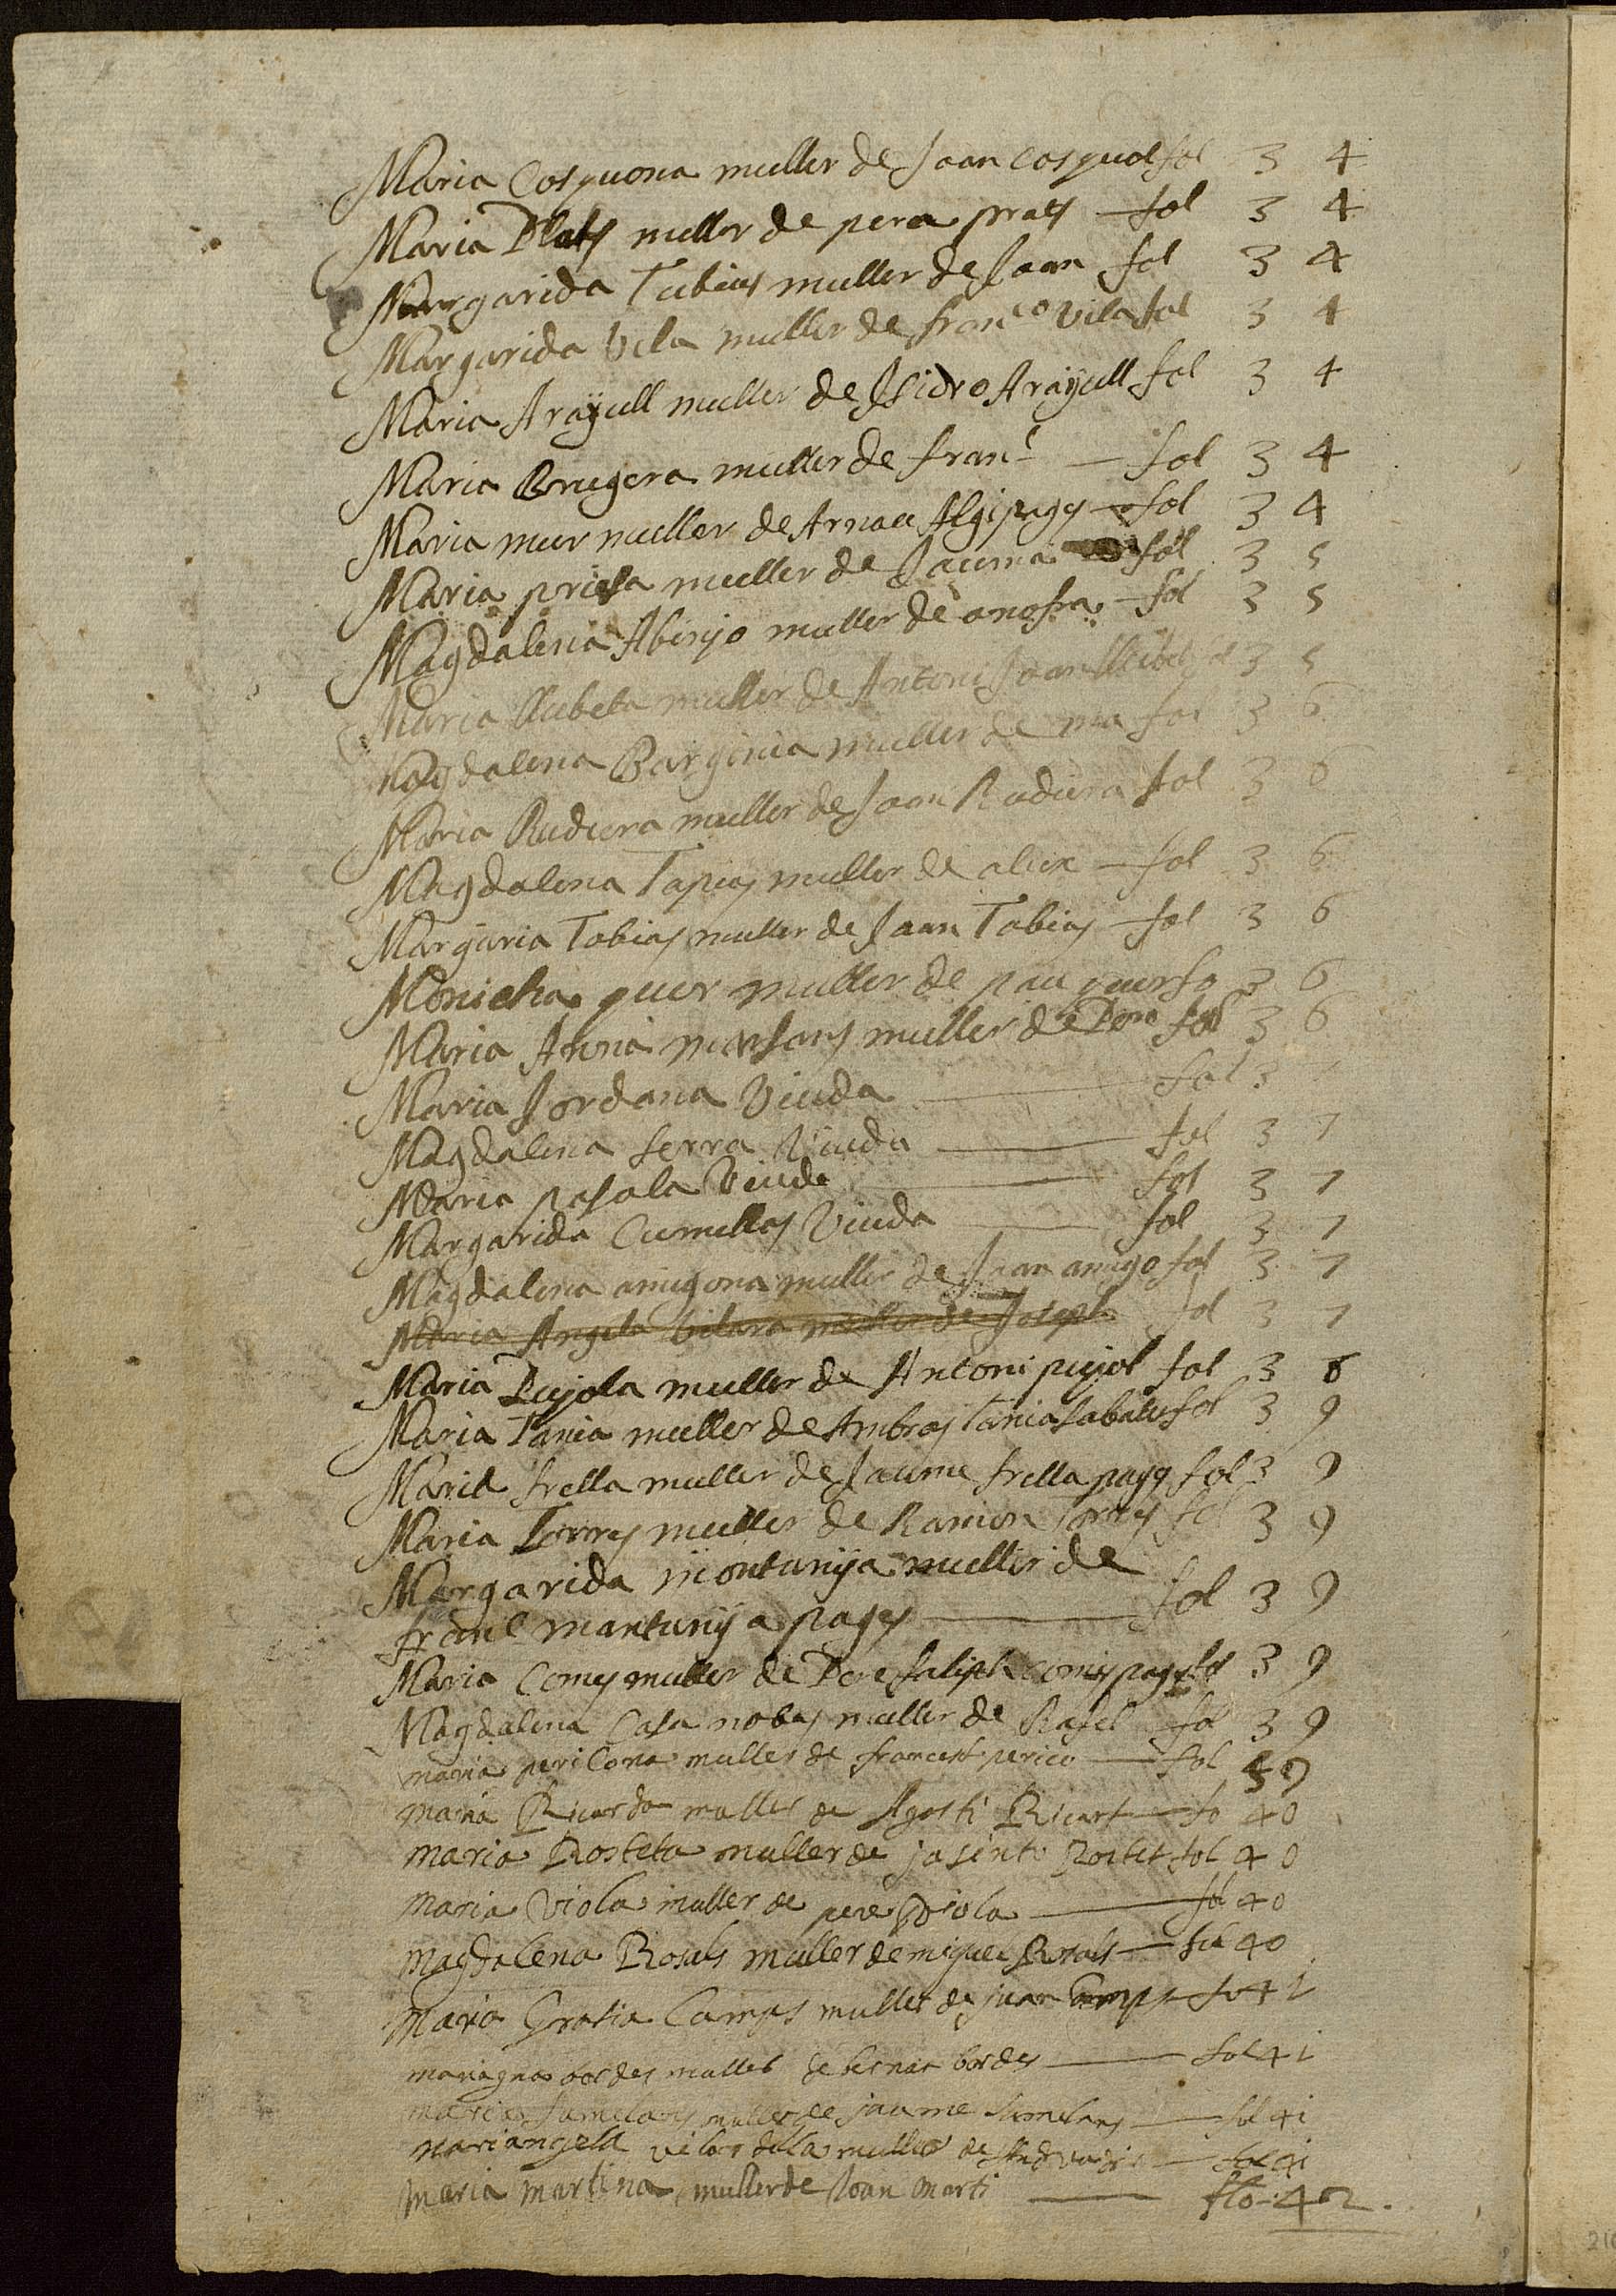 Maria Cosquona muller de Joan Cosquol fol 34
Maria Plats muller de pera prats fol 34
Margarida Tubias muller de Joan fol 34
Margarida Vila muller de franco Vila fol 34
Maria Arayull muller de Isidro Arayull fol 34
Maria Brugera muller de franc fol 34
Maria mur muller de Arnau pages fol 34
Maria muller de Jauma fol 35
Magdalena Abinyo muller de onofra fol 35
Maria Llubeta muller de Antoni Joan fol 35
Magdalena Barginia muller de ma fol 36
Maria Rudiera muller de Joan Rudiera fol 36
Magdalena Tapias muller de aleix fol 36
Margaria Tobias muller de Joan Tobias fol 36
Monicha quer muller de pau quer fo 36
Maria Anna marsans muller de Pera fol 36
Maria Jordana Viuda fol 37
Magdalena serra Viuda fol 37
Maria pasola Viuda fol 37
Margarida Cumellas Viuda fol 37
Magdalena amigona muller de Joan amigo fol 37
Maria Angela Vilara muller de Joseph fol 37
Maria Pujola muller de Antoni pujol fol 38
Maria Tania muller de Ambros Tania sabater fol 39
Maria frella muller de Jaume frella pagq fol 39
Maria Torres muller de Ramon Torres fol 39
Margarida montunya muller de
franc montunya pages fol 39
Maria Comes muller de Pere falip comes pages fol 39
Magdalena Casanobas muller de Rafel fol 39
maria pericona muller de francesh perico fol 39
maria Ricarda muller de Agosti Ricart fo 40
maria Rosteta muller de jasinto Rostet fol 40
maria Viola muller de pere Viola fol 40
magdalena Rosals muller de miquel Rosals fol 40
maria Gratia Camps muller de juan Camps fo 41
mariagna bordes muller de bernat bordes fol 41
maria sumelans muller de jaume sumelans fol 41
mariangela muller de fol 41
maria martina muller de Joan marti flo 42